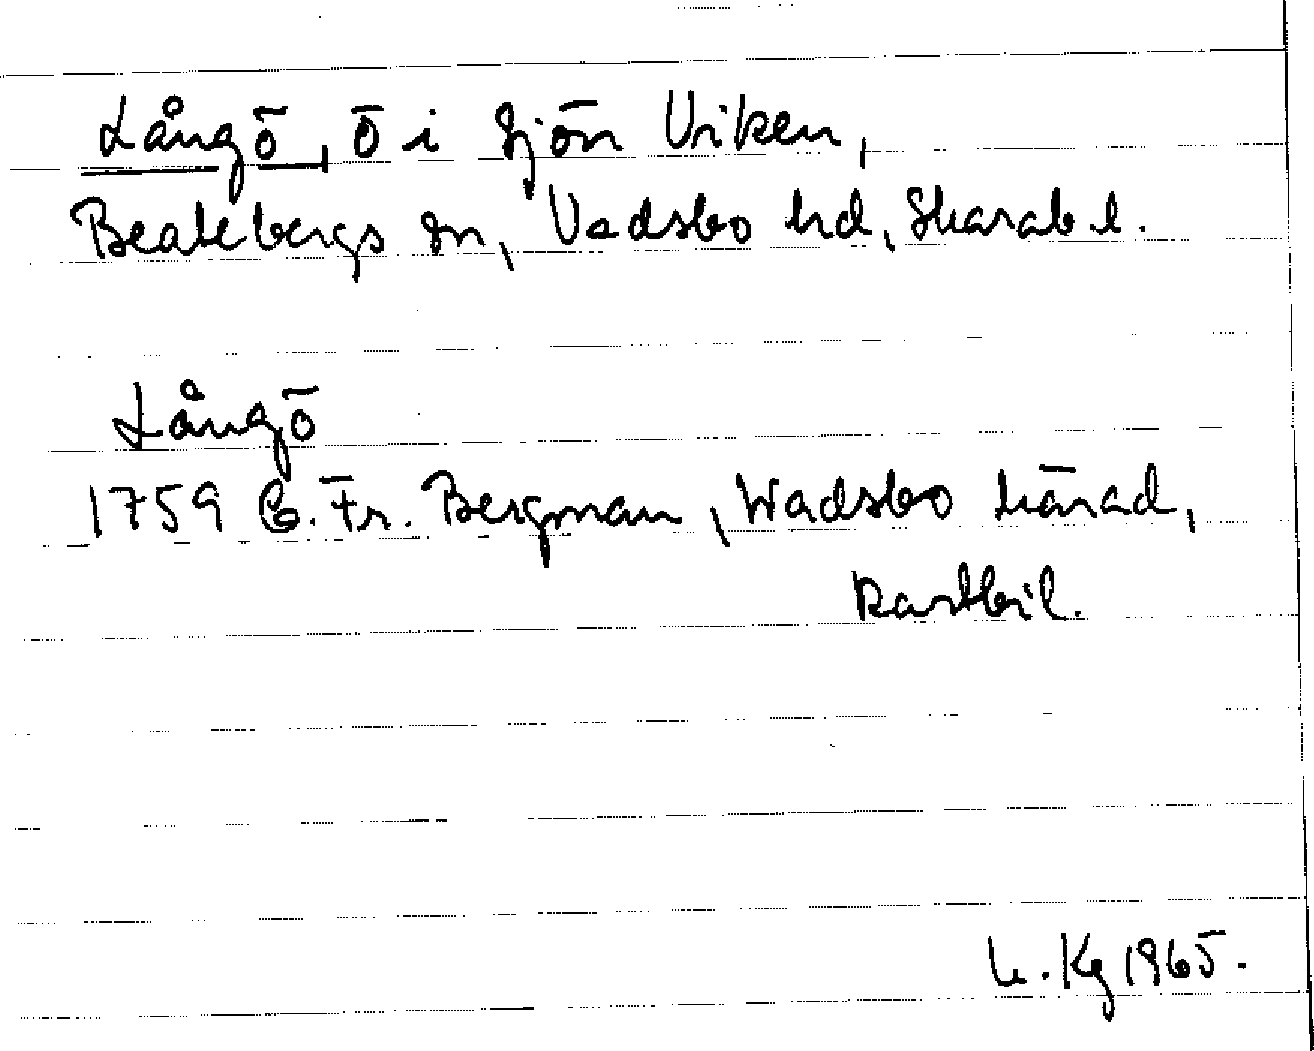 Långö, ö i sjön Viken,
Beatebergs sn, Vadsbo hd, Skarab. l.
Långö
1759 C. Fr. Bergman, Wadsbo härad,
kartbil.
Kg 1965.